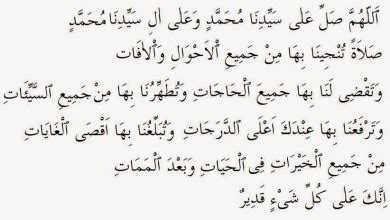 اَللّٰهُمَّ صَلِّ عَلٰى سَيِّدِنَا مُحَمَّدٍ وَعَلٰى اٰلِ سَيِّدِنَا مُحَمَّدٍ
صَلَاةً تُنْجِينَا بِهَا مِنْ جَمِيعِ الْاَحْوَالِ وَالْاٰفَاتِ
وَتَقْضِى لَنَا بِهَا جَمِيعَ الْحَاجَاتِ وَتُطَهِّرُنَا بِهَا مِنْ جَمِيعِ السَّيِّئَاتِ
وَتَرْفَعُنَا بِهَا عِنْدَكَ اَعْلَى الدَّرَجَاتِ وَتُبَلِّغُنَا بِهَا اَقْصَى الْغَايَاتِ
مِنْ جَمِيعِ الْخَيْرَاتِ فِى الْحَيَاتِ وَبَعْدَ الْمَمَاتِ
اِنَّكَ عَلٰى كُلِّ شَىْءٍ قَدِيرٌ